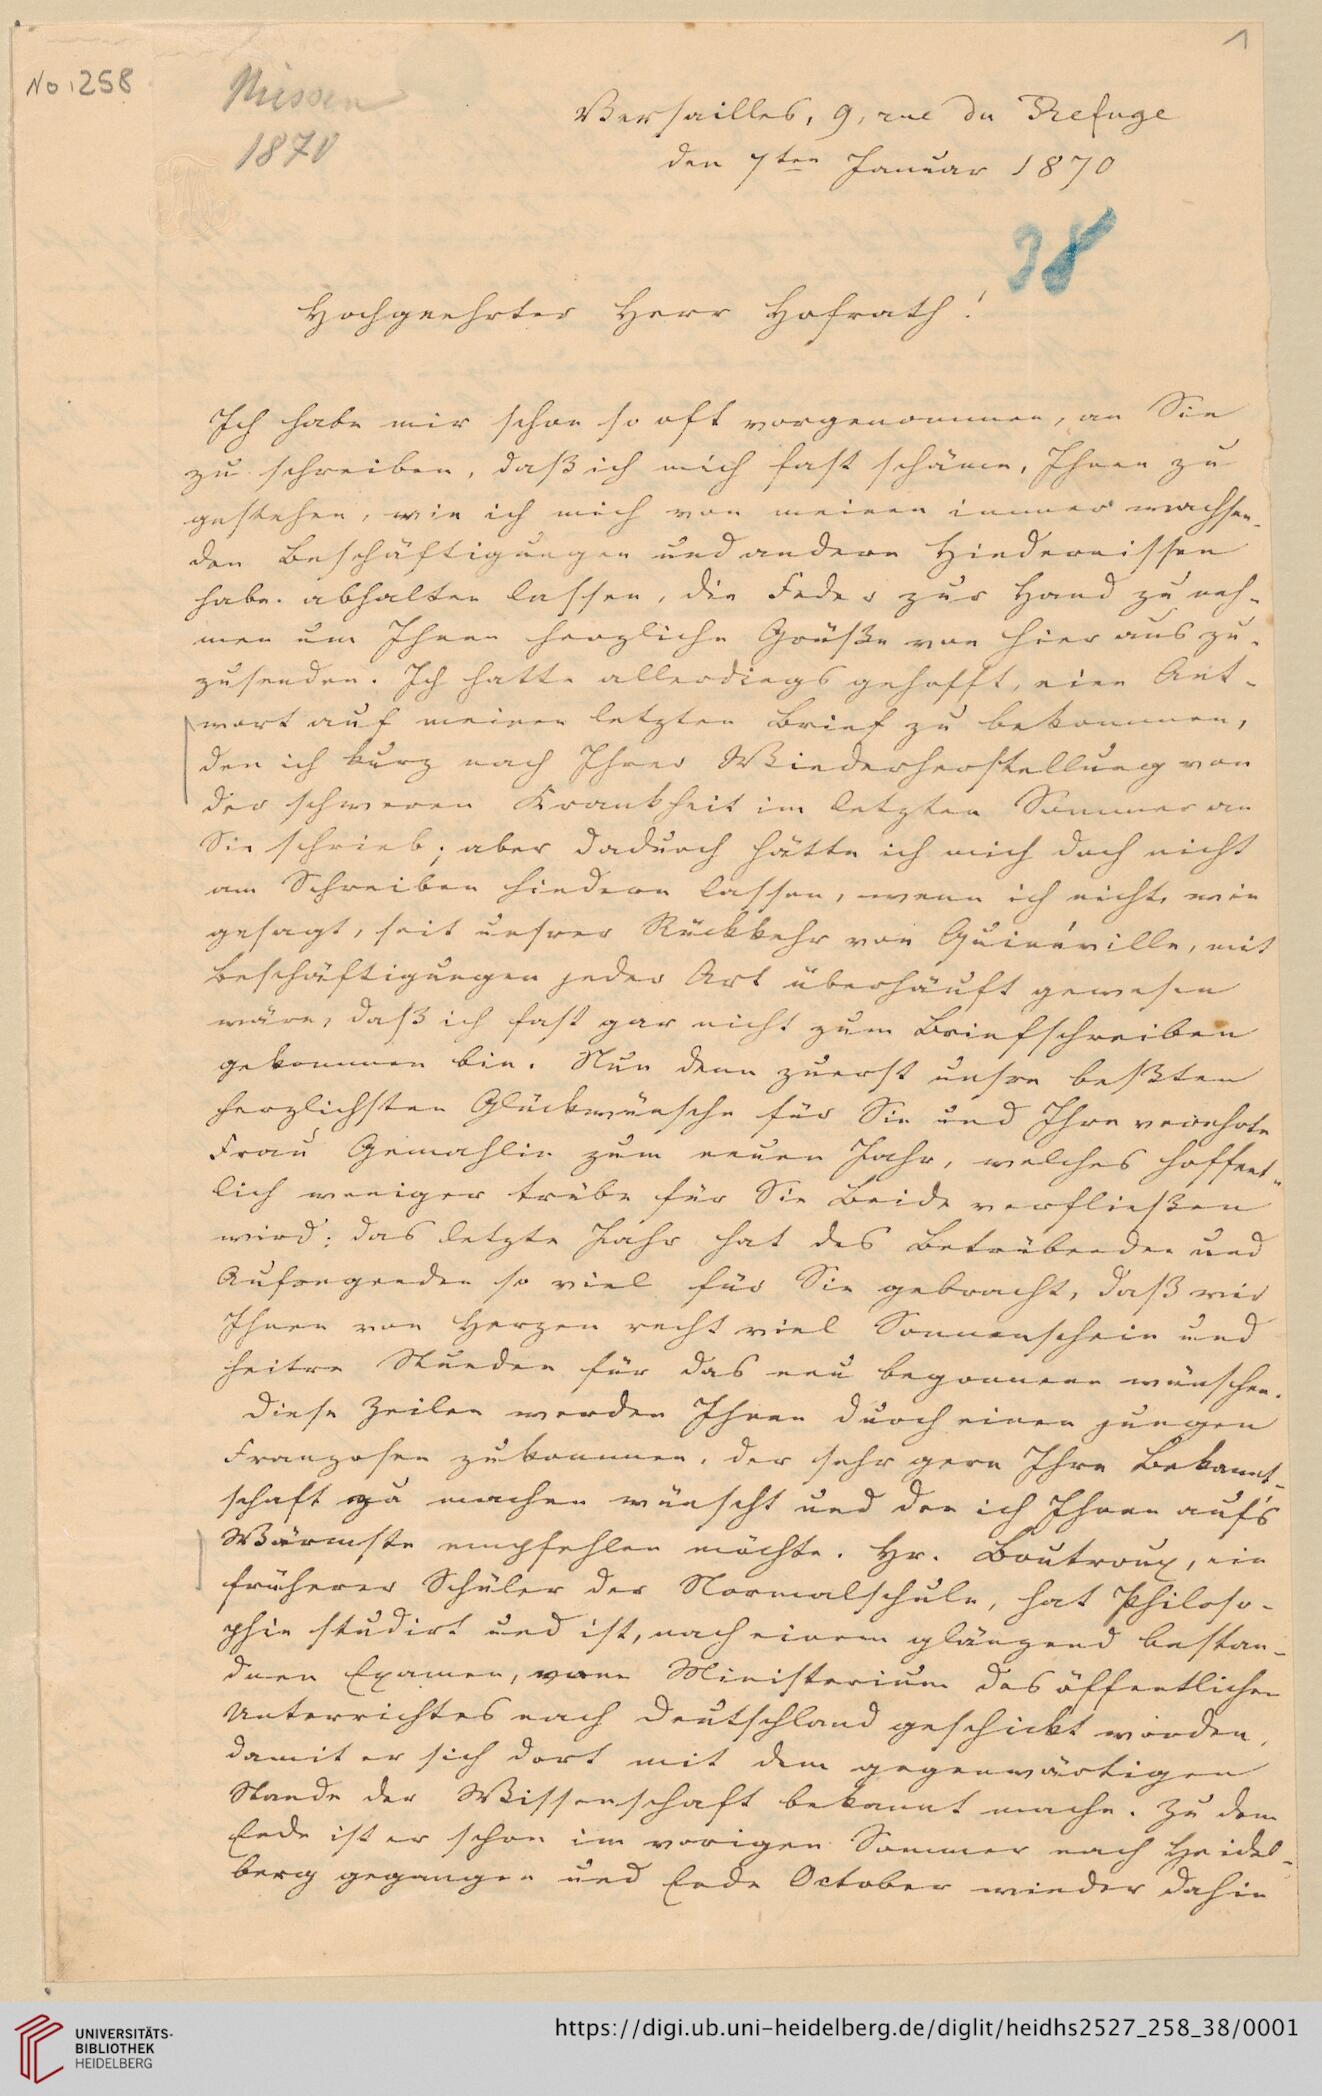 1
No. 258
Nissen
1870
Versailles, 9, rue du Refuge
den 7ten Januar 1870
38
Hochgeehrter Herr Hofrath!
Ich habe mir schon so oft vorgenommen, an Sie
zu schreiben, daß ich mich fast schäme, Ihnen zu
gestehen, wie ich mich von meinen immer wachsen-
den Beschäftigungen und andern Hindernissen
habe abhalten lassen, die Feder zur Hand zu neh-
men um Ihnen herzliche Grüße von hier aus zu-
zusenden. Ich hatte allerdings gehofft, eine Ant-
wort auf meinen letzten Brief zu bekommen,
den ich kurz nach Ihrer Wiederherstellung von
der schweren Krankheit im letzten Sommer an
Sie schrieb; aber dadurch hätte ich mich doch nicht
am Schreiben hindern lassen, wenn ich nicht, wie
gesagt, seit unsrer Rückkehr von Quinéville, mit
Beschäftigungen jeder Art überhäuft gewesen
wäre, daß ich fast gar nicht zum Briefschreiben
gekommen bin. Nun denn zuerst unsre beßten
herzlichsten Glückwünsche für Sie und Ihre verehrte
Frau Gemahlin zum neuen Jahr, welches hoffent-
lich weniger trübe für Sie Beide verfließen
wird; das letzte Jahr hat des Betrübenden und
Aufregenden so viel für Sie gebracht, daß wir
Ihnen von Herzen recht viel Sonnenschein und
heitre Stunden für das neu begonnene wünschen.
Diese Zeilen werden Ihnen durch einen jungen
Franzosen zukommen, der sehr gern Ihre Bekannt-
schaft zu machen wünscht und den ich Ihnen auf's
Wärmste empfehlen möchte. Hr. Boutroux, ein
früherer Schüler der Normalschule, hat Philoso-
phie studirt und ist, nach einem glänzend bestan-
denen Examen, vom Ministerium des öffentlichen
Unterrichtes nach Deutschland geschickt worden,
damit er sich dort mit dem gegenwärtigen
Stande der Wissenschaft bekannt mache. Zu dem
Ende ist er schon im vorigen Sommer nach Heidel-
berg gegangen und Ende October wieder dahin
UNIVERSITÄTS-
BIBLIOTHEK
HEIDELBERG
https://digi.ub.uni-heidelberg.de/diglit/heidhs2527_258_38/0001